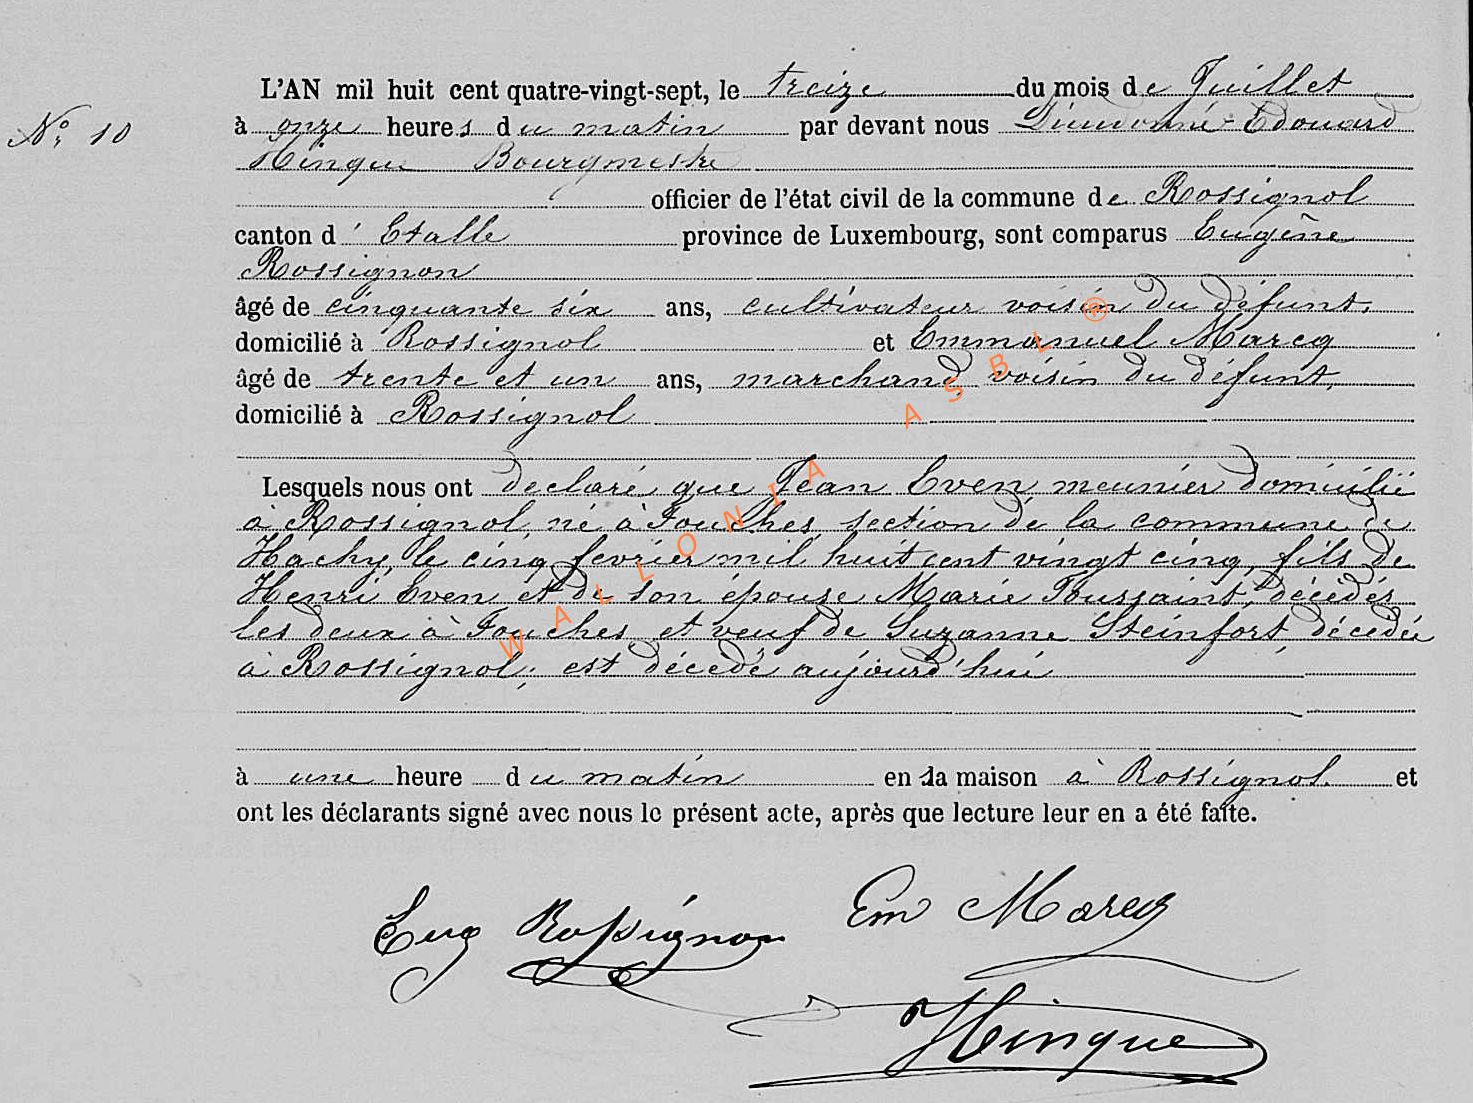 L'AN mil huit cent quatre-vingt-sept, le treize du mois de Juillet
N° 10
à onze heures du matin par devant nous Dieudonné-Edouard
Hinque Bourgmestre
officier de l'état civil de la commune de Rossignol
canton d'Etalle province de Luxembourg, sont comparus Eugène
Rossignon
âgé de cinquante six ans, cultivateur voisin du défunt,
domicilié à Rossignol et Emmanuel Marcq
âgé de trente et un ans, marchand, voisin du défunt,
domicilié à Rossignol
Lesquels nous ont déclaré que Jean Even meunier domicilié
à Rossignol, né à Fouches, section de la commune de
Hachy, le cinq février mil huit cent vingt cinq, fils de
Henri Even et de son épouse Marie Toussaint, décédés
les deux à Fouches, et veuf de Suzanne Steinfort, décédée
à Rossignol, est décédé aujourd'hui
à une heure du matin en la maison à Rossignol et
ont les déclarants signé avec nous le présent acte, après que lecture leur en a été faite.
Eug Rossignon Em Marcq
Hinque
WALLONIA ASBL ®